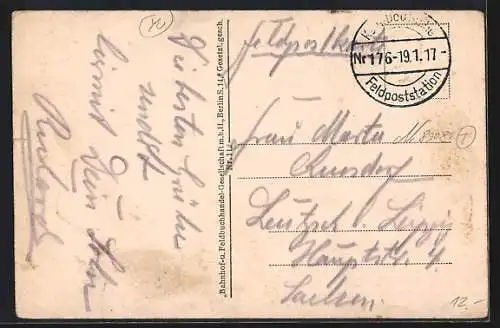 Die besten Grüße
sendet
hiermit Dein Sohn
"Bahnhof- u. Feldbuchhandel-Gesellschaft m. b. H., Berlin S. 14." Gesetzl. gesch.
Nr. 11
Feldpostkarte
Nr 176-19.1.17-
Feldpoststation
Frau Martha
Leutzsch b. Leipzig
Hauptstr.
Sachsen.
12.-